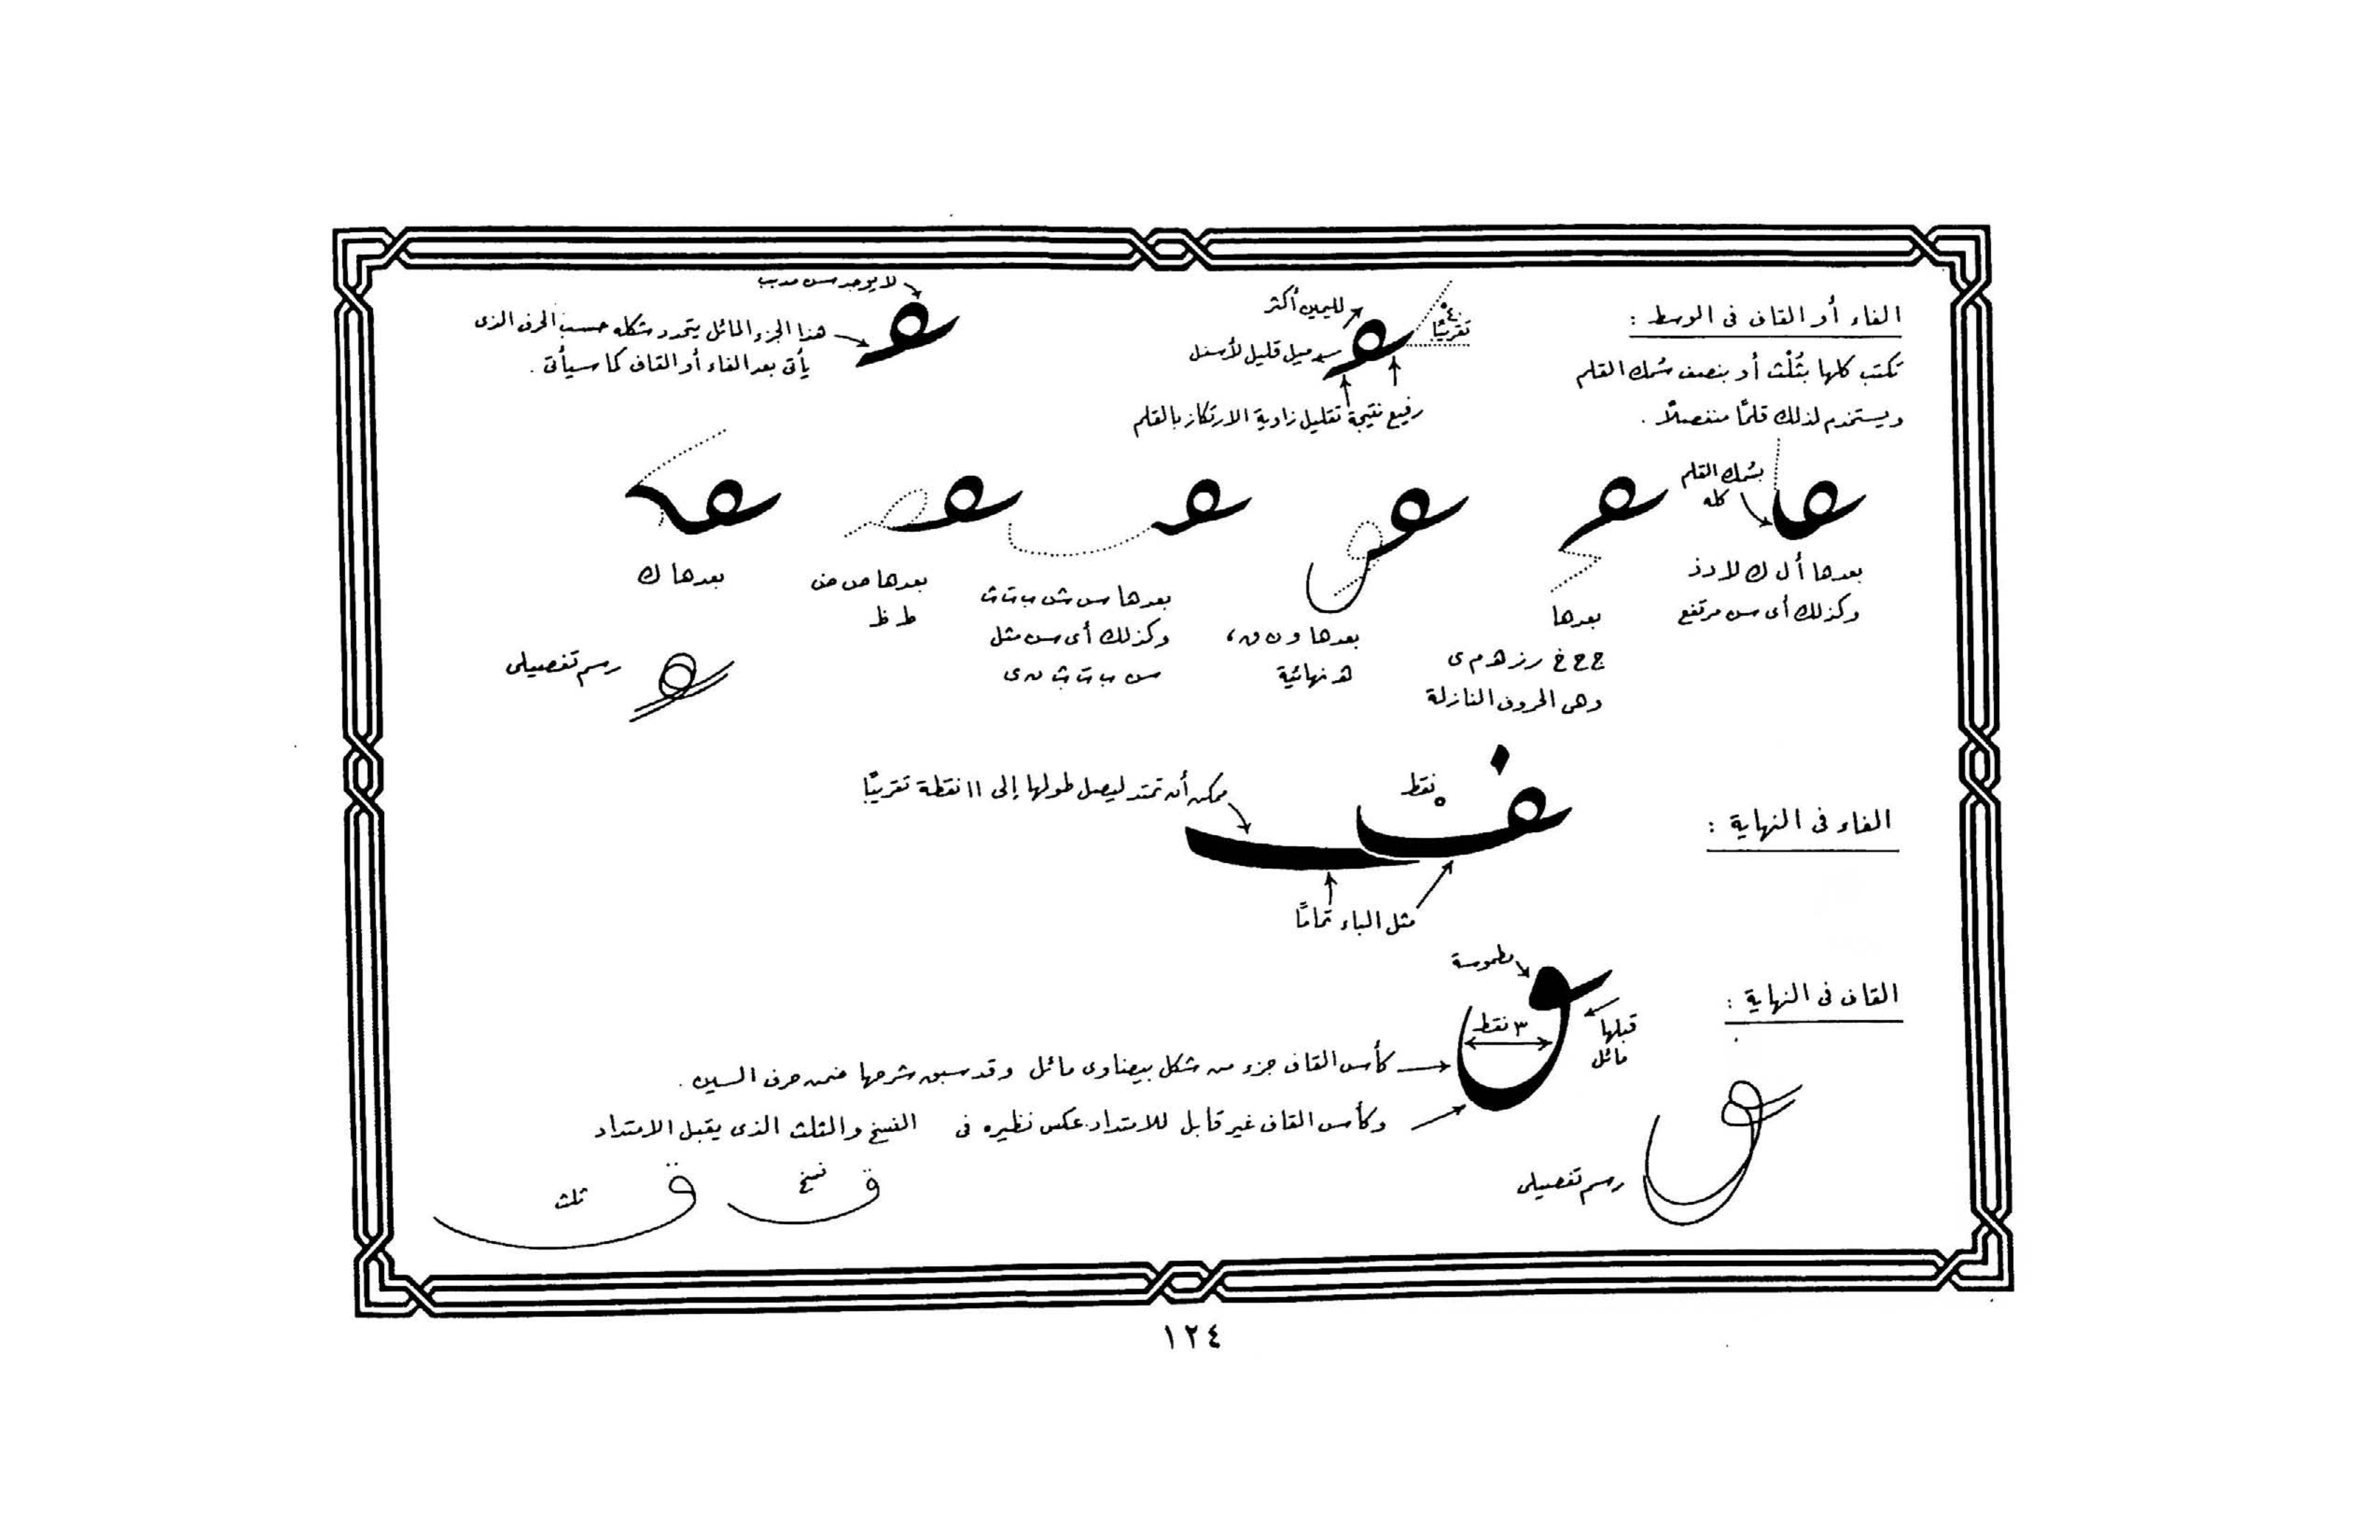 الفاء أو القاف فى الوسط :
تكتب كلها بثُلْث أو بنصف سُمك القلم
ويستخدم لذلك قلمًا منفصلاً .
٤٠°
تقريبًا
لليمين أكثر
ميل قليل لأسفل
رفيع نتيجة تقليل زاوية الارتكاز بالقلم
لا يوجد سن مدبب
هذا الجزء المائل يتحدد شكله حسب الحرف الذى
يأتى بعد الفاء أو القاف كما سيأتى .
بسُمك القلم
كله
بعدها أ ل ك لا د ذ
وكذلك أى سن مرتفع
بعدها
ج ح خ ر ز هـ م ى
وهى الحروف النازلة
بعدها و ن ق ،
ـه نهائية
بعدها س ش ب ت ث
وكذلك أى سن مثل
سـ بـ تـ ثـ نـ ى
بعدها ص ض
ط ظ
بعدها ك
رسم تفصيلى
الفاء فى النهاية :
ف
٥ نقط
ممكن أن تمتد ليصل طولها إلى ١١ نقطة تقريبًا
مثل الباء تمامًا
القاف فى النهاية :
مطموسة
٣ نقط
قبلها
مائل
كأس القاف جزء من شكل بيضاوى مائل وقد سبق شرحها ضمن حرف السين .
وكأس القاف غير قابل للامتداد عكس نظيره فى النسخ والثلث الذى يقبل الامتداد
رسم تفصيلى
ق
نسخ
ق
ثلث
١٢٤